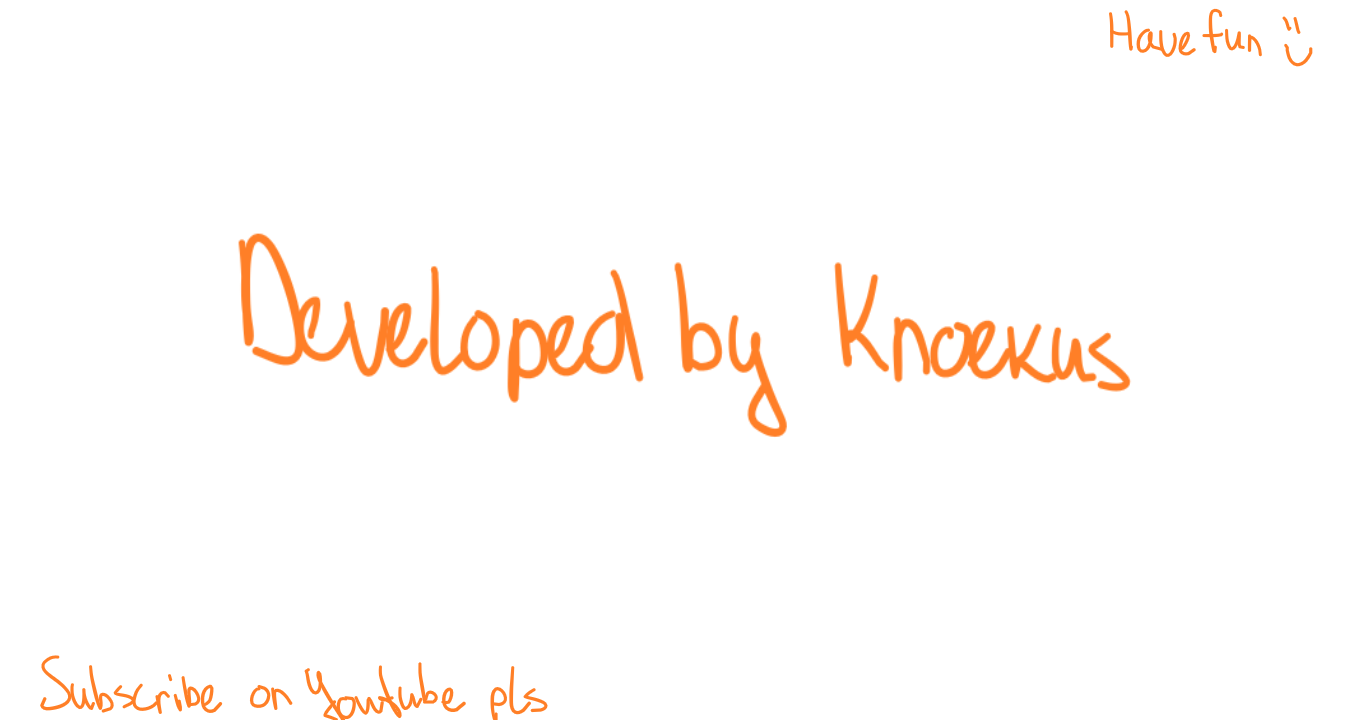 Have fun :)
Developed by Knoekus
Subscribe on Youtube pls